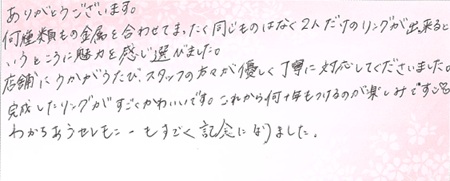 ありがとうございます。
何種類もの金属を合わせてまったく同じものはなく2人だけのリングが出来ると
いうところに魅力を感じ選びました。
店舗にうかがうたび、スタッフの方々が優しく丁寧に対応してくださいました。
完成したリングがすごくかわいいです。これから何十年もつけるのが楽しみです。
わかちあうセレモニーもすごく記念になりました。